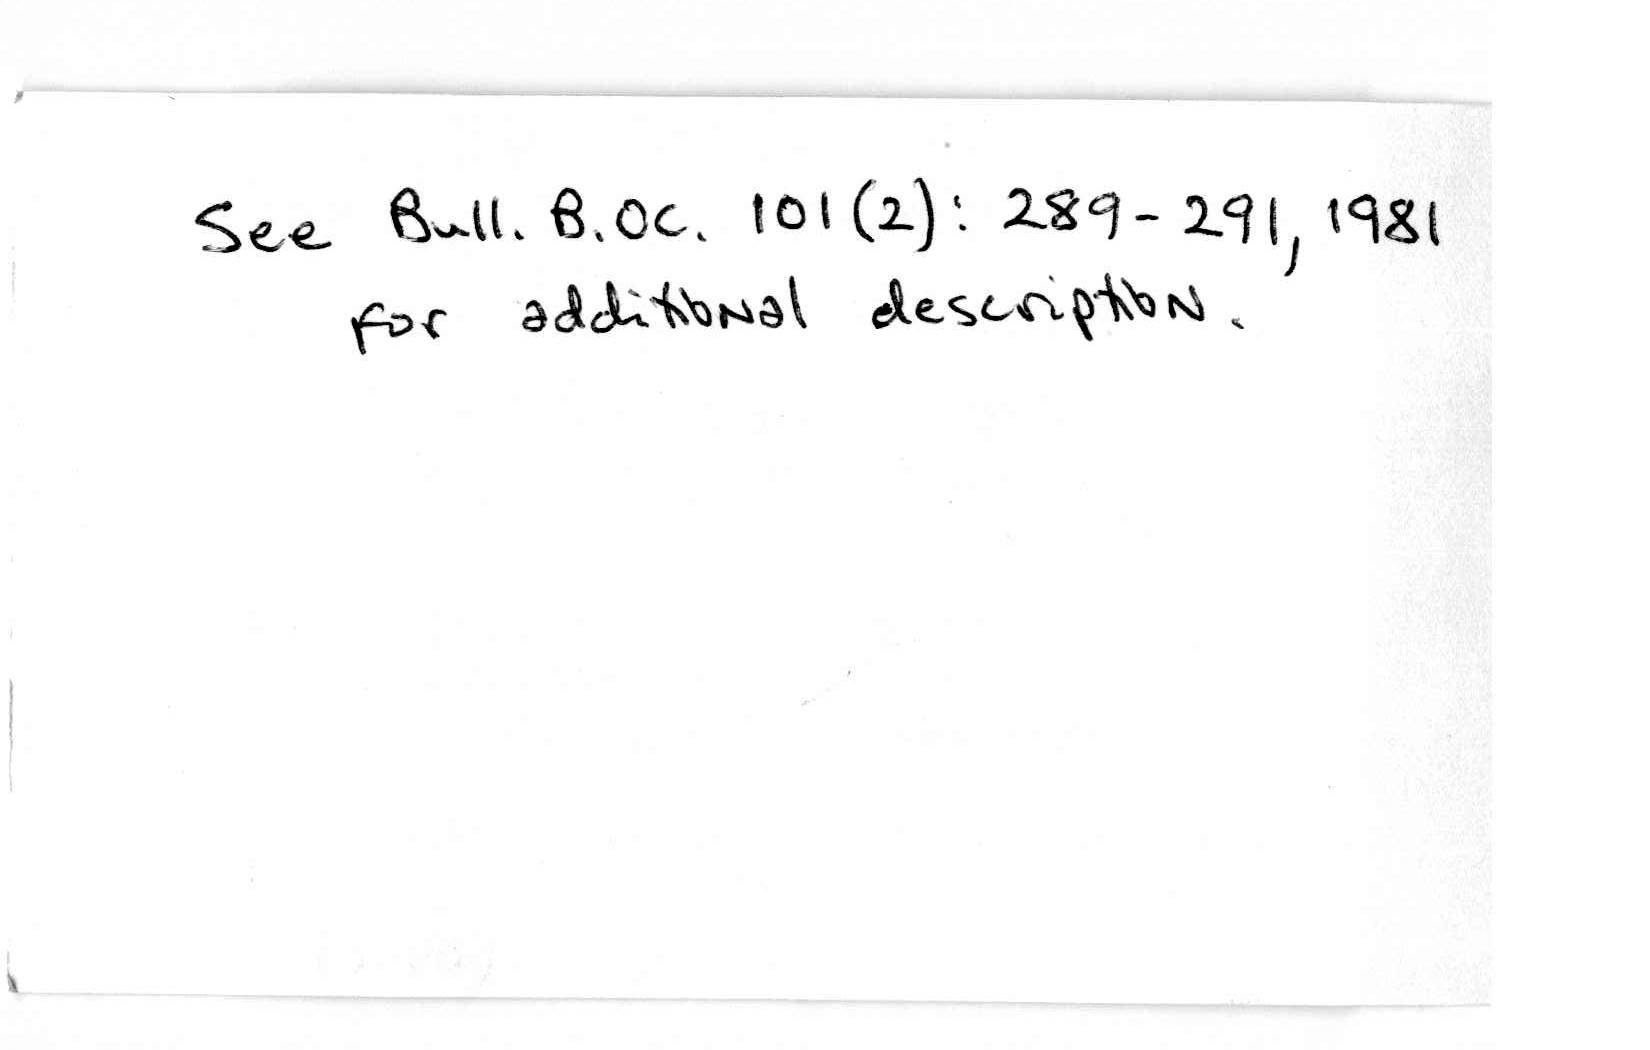 See Bull. B.OC. 101(2): 289-291, 1981
for additional description.